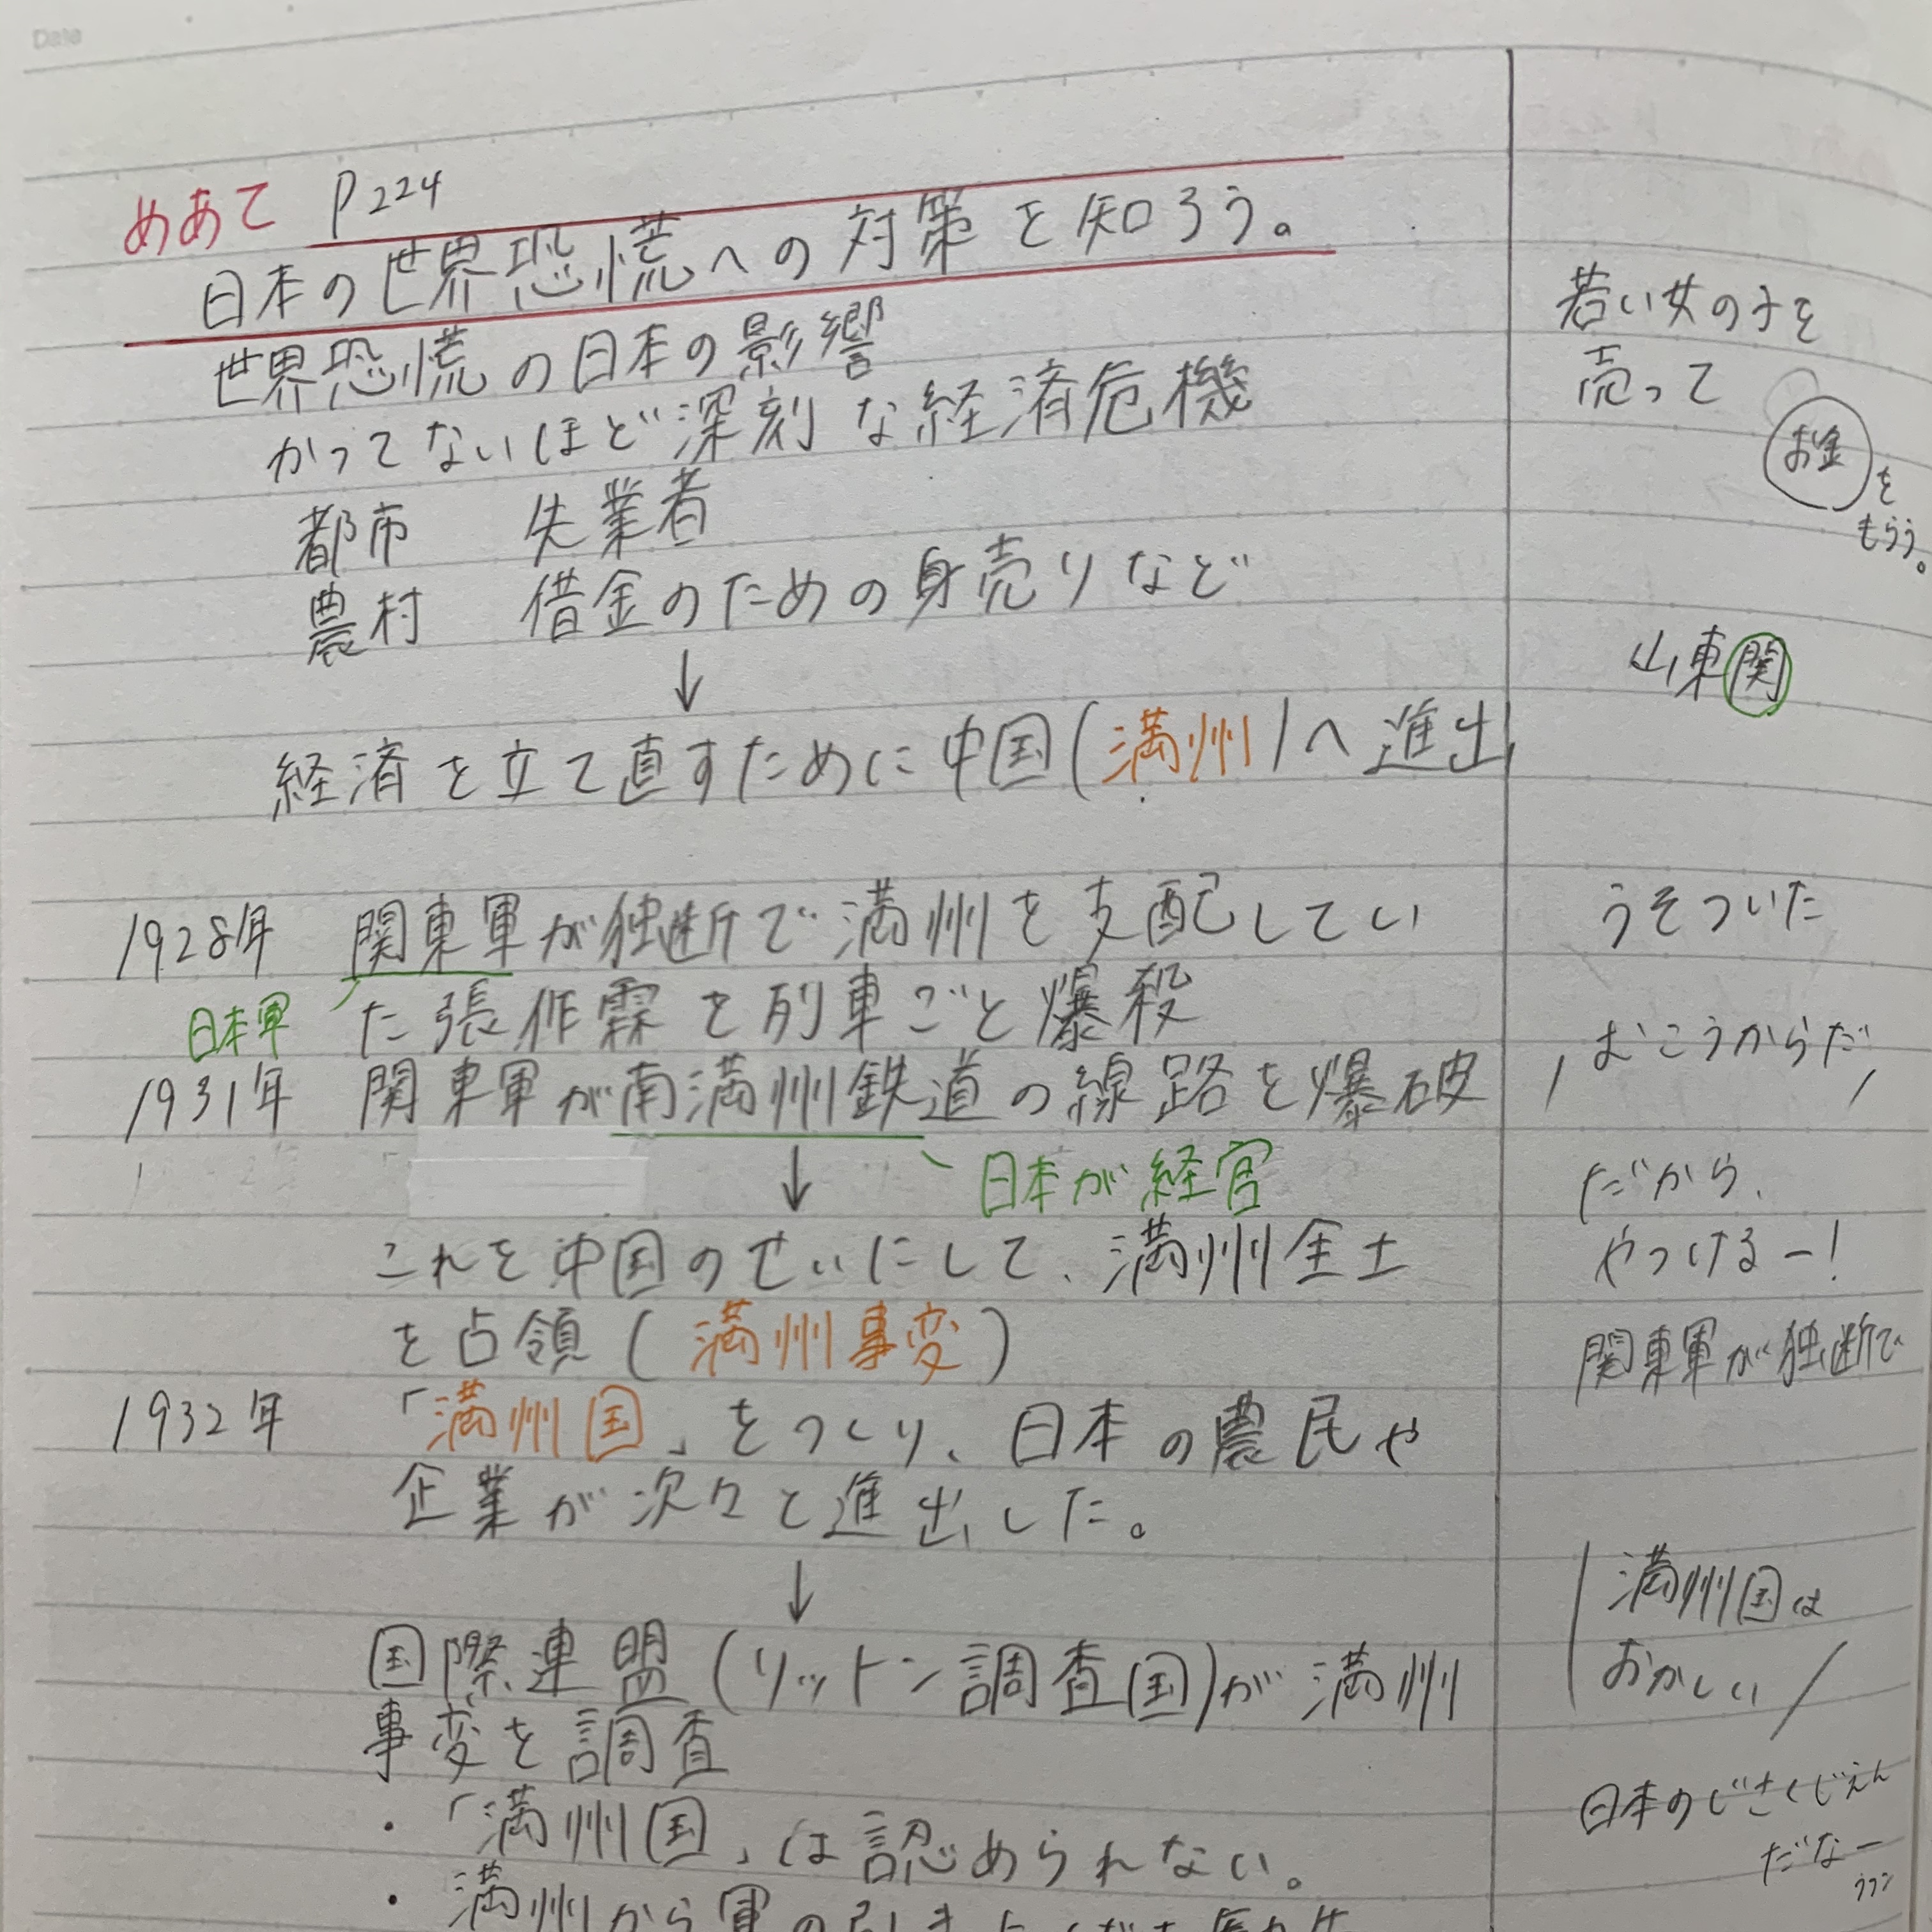 Date
めあて P224
日本の世界恐慌への対策を知ろう。
世界恐慌の日本の影響
かつてないほど深刻な経済危機
都市 失業者
農村 借金のための身売りなど
↓
経済を立て直すために中国(満州)へ進出
1928年 関東軍が独断で満州を支配してい
日本軍 た張作霖を列車ごと爆殺
1931年 関東軍が南満州鉄道の線路を爆破
↓ 日本が経官
これを中国のせいにして、満州全土
を占領(満州事変)
1932年 「満州国」をつくり、日本の農民や
企業が次々と進出した。
↓
国際連盟(リットン調査国)が満州
事変を調査
・「満州国」は認められない。
・満州から軍の引き
若い女の子を
売って
お金を
もらう。
山東関
うそついた
むこうからだ
だから、
やっつけるー!
関東軍が独断で
満州国は
おかしい
日本のじさくじえん
だなー